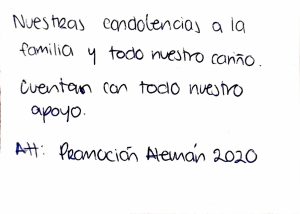 Nuestras condolencias a la
familia y todo nuestro cariño.
Cuentan con todo nuestro
apoyo.
Att: Promoción Alemán 2020